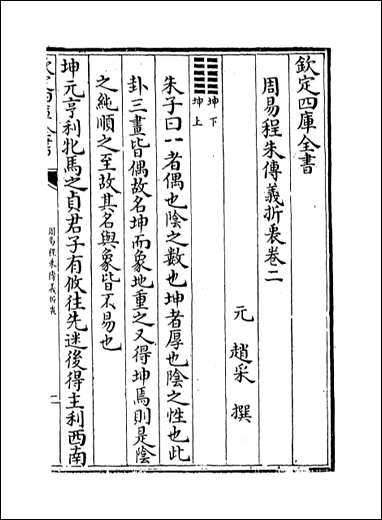 欽定四庫全書
周易程朱傳義折衷卷二
元 趙采 撰
坤下
坤上
朱子曰--者偶也陰之數也坤者厚也陰之性也此
卦三畫皆偶故名坤而象地重之又得坤焉則是陰
之純順之至故其名與象皆不易也
坤元亨利牝馬之貞君子有攸往先迷後得主利西南
周易程朱傳義折衷